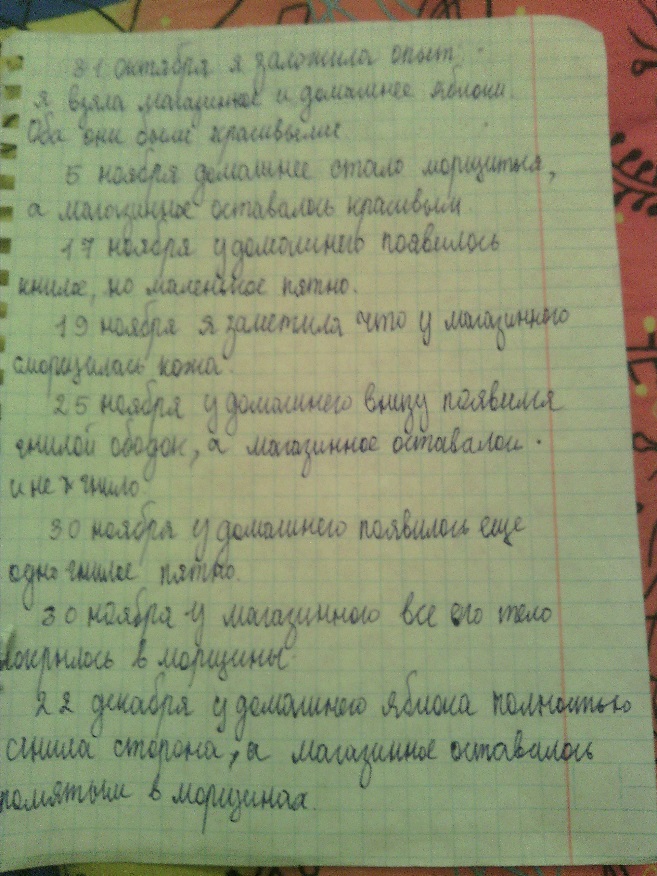 31 октября я заложила опыт.
я взяла магазинное и домашнее яблоки.
Оба они были красивыми
5 ноября домашнее стало морщиться,
а магазинное оставалось красивым
17 ноября у домашнего появилось
гнилое, но маленькое пятно.
19 ноября я заметила что у магазинного
сморщилась кожа.
25 ноября у домашнего внизу появился
гнилой ободок, а магазинное
и не гнило
30 ноября у домашнего появилось еще
одно гнилое пятно.
30 ноября у магазинного все его тело
покрылось в морщины.
22 декабря у домашнего яблока полностью
сгнила сторона, а магазинное оставалось
помятым в морщинах.